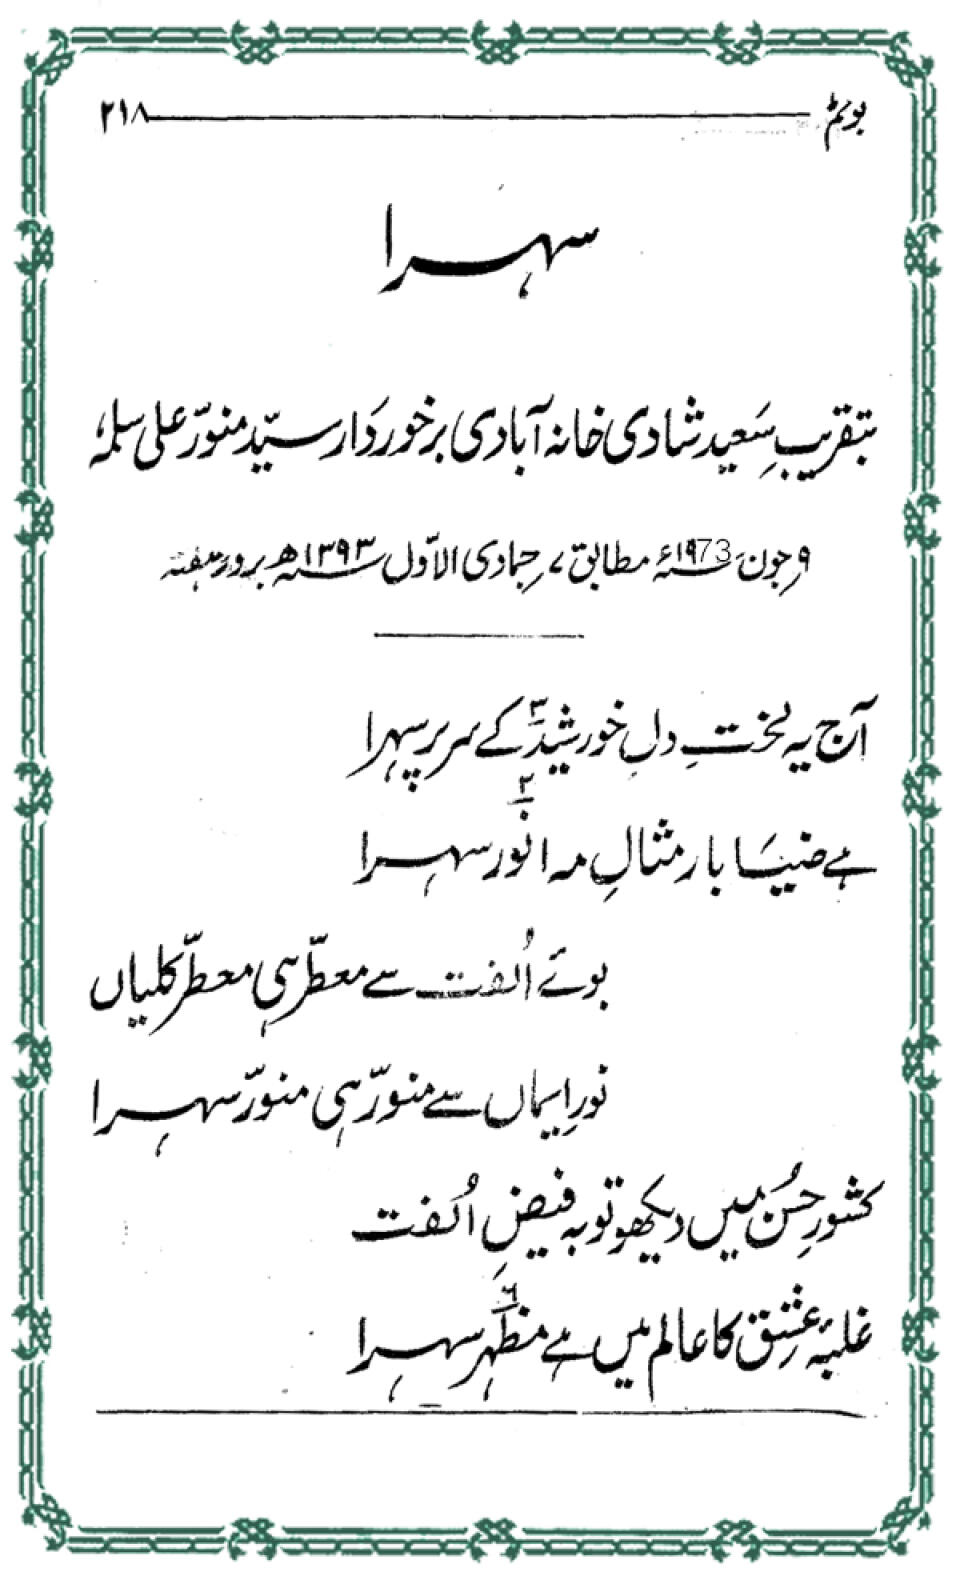 بوئم ۲۱۸
سہرا
بتقریبِ سَعید شادی خانہ آبادی برخوردَار سیّد منوّر علی سلمہٗ
۹ رجون ۱۹73ء مطابق ۷ رجمادی الاوّل ۱۳۹۳ھ بروز ہفتہ
آج یہ لختِ دلِ خورشیدؔ ۳ کے سر پر سہرا
ہے ضیَا بار مثالِ مہ انورؔ ۲ سہرا
بوئے اُلفت سے معطّر ہی معطّر کلیاں
نورِ ایماں سے منوّر ہی منوّر سہرا
کشورِ حُسن میں دیکھو تو بہ فیضِ اُلفت
غلبۂ عشق کا عالم میں ہے مظہرؔ ۶ سہرا